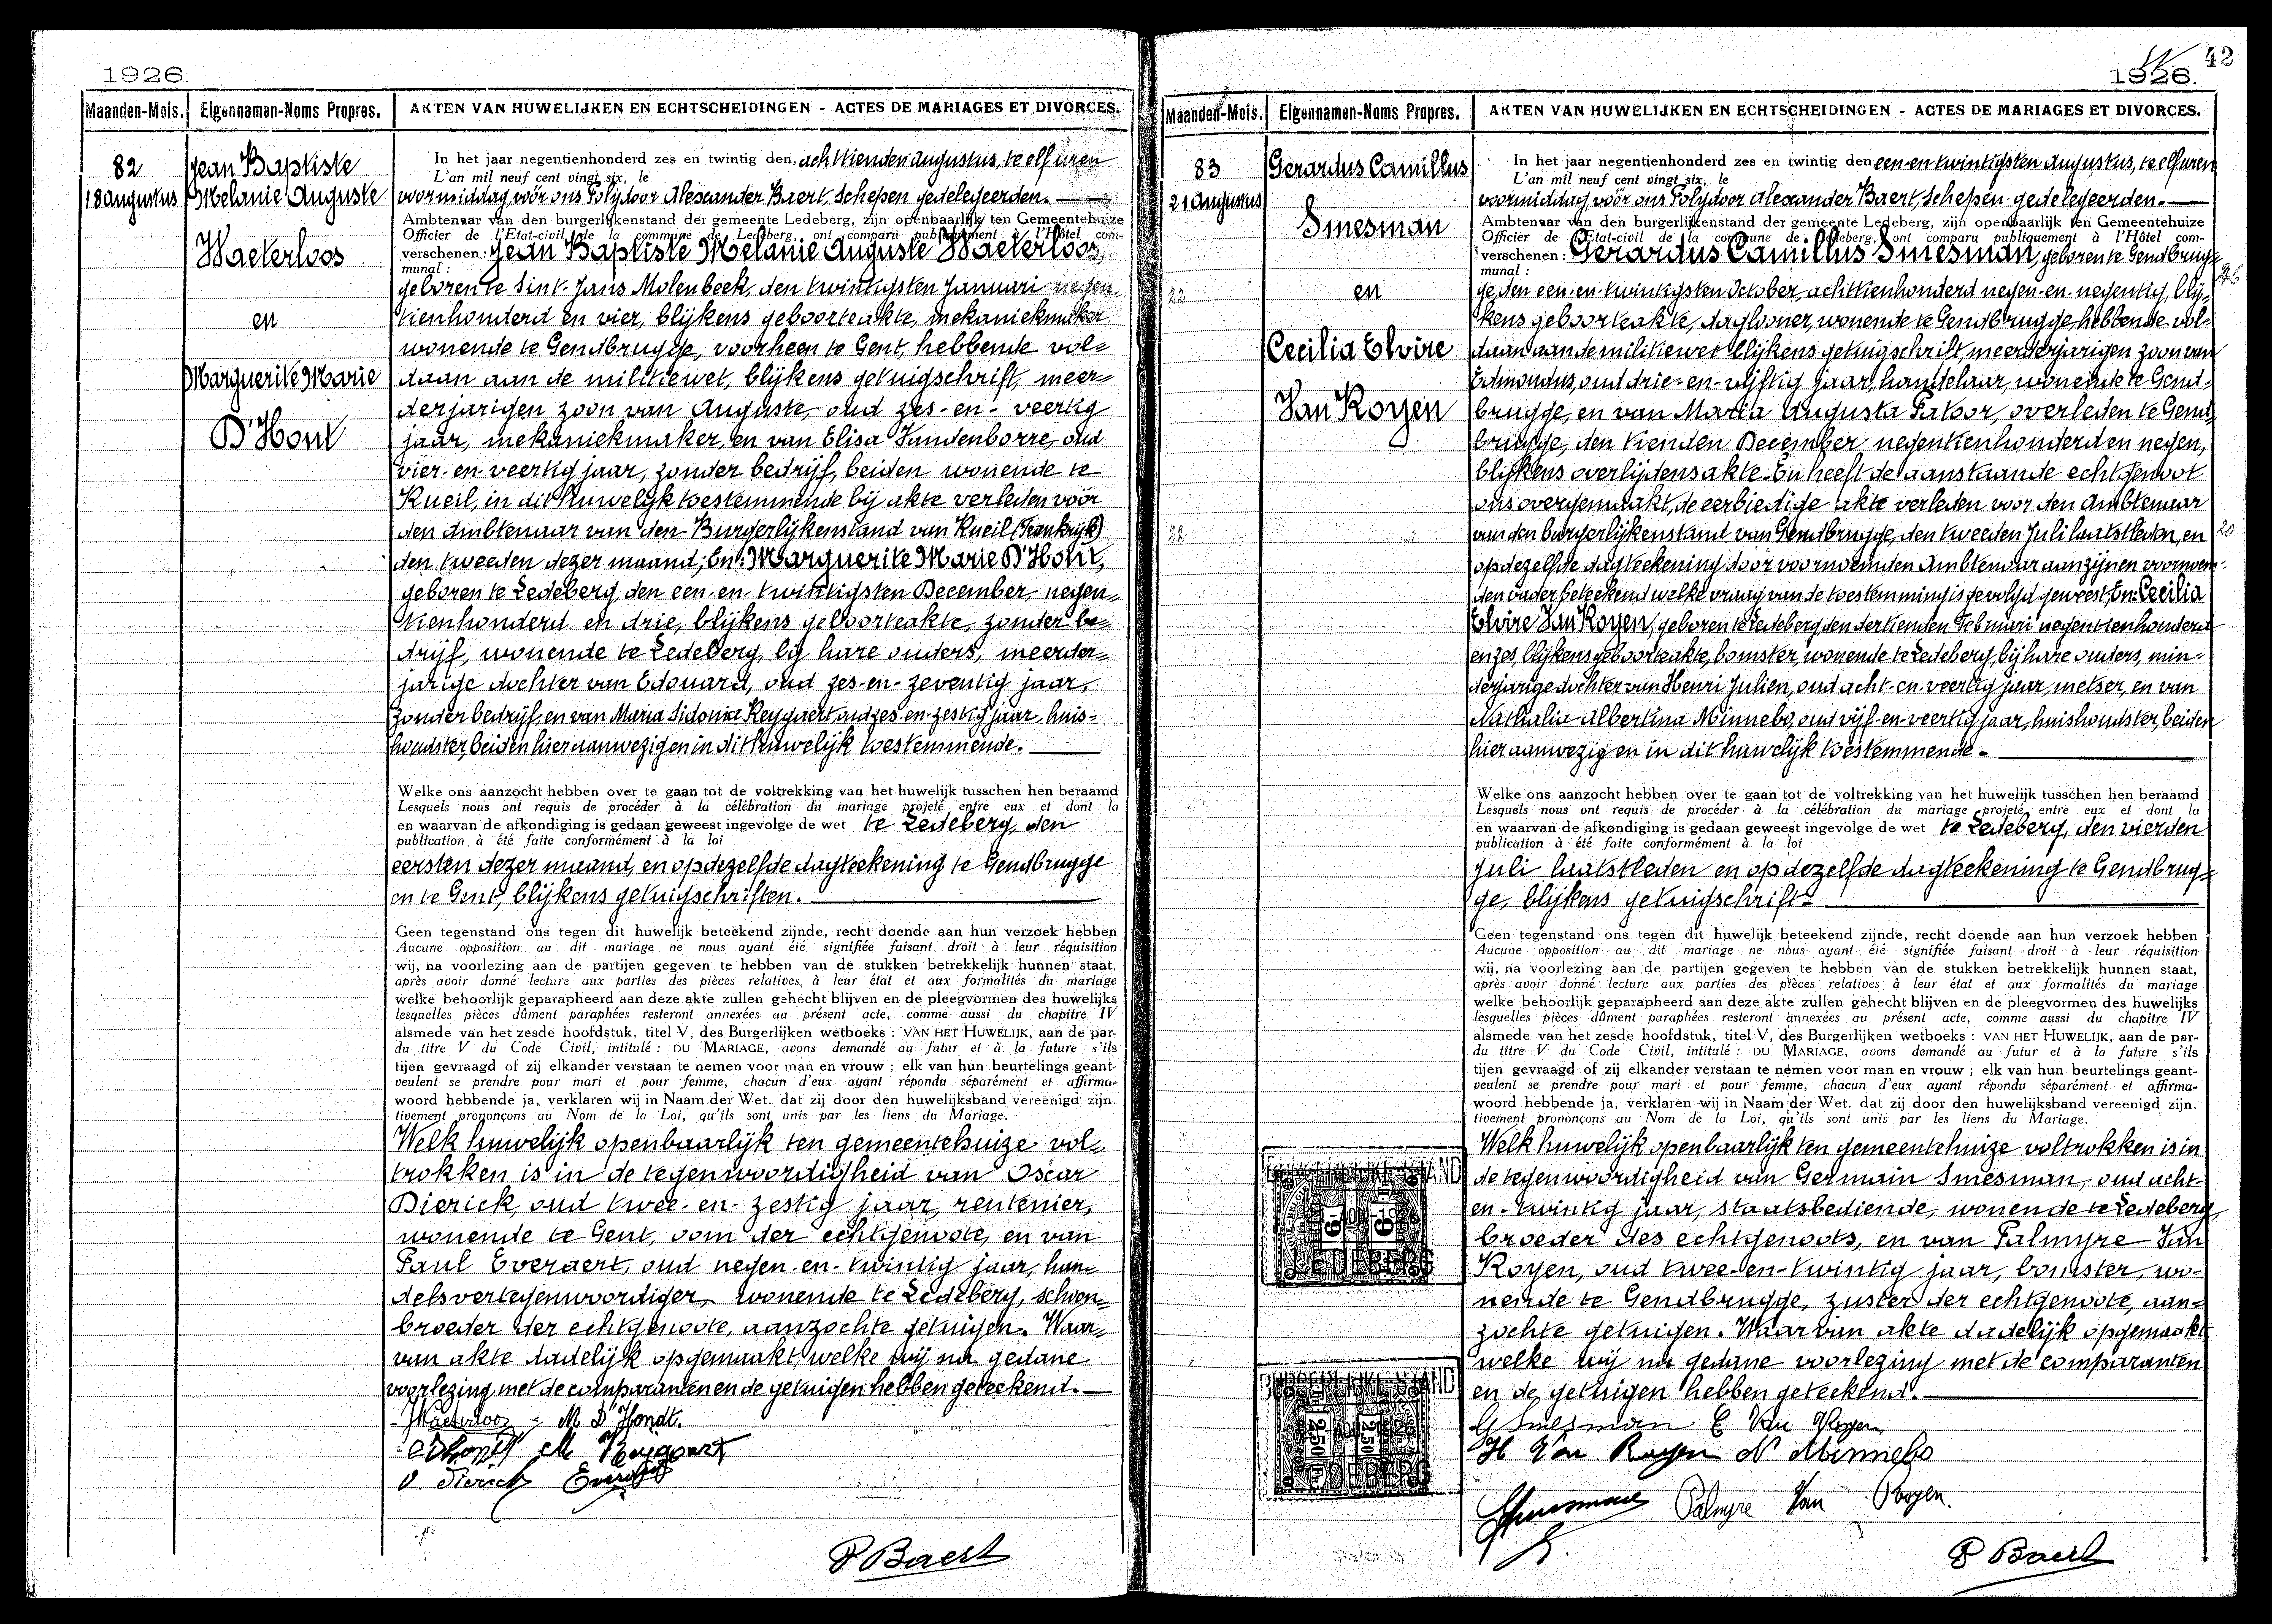 1926.
Maanden-Mois. Eigennamen-Noms Propres. AKTEN VAN HUWELIJKEN EN ECHTSCHEIDINGEN - ACTES DE MARIAGES ET DIVORCES.
82
18 augustus
Jean Baptiste
Melanie Auguste
Waeterloos
en
Marguerite Marie
D'Hont
In het jaar negentienhonderd zes en twintig den, achttienden augustus, te elf uren
L'an mil neuf cent vingt six, le
voormiddag vóór ons Polydoor Alexander Baert, Schepen gedelegeerden.
Ambtenaar van den burgerlijkenstand der gemeente Ledeberg, zijn openbaarlijk ten Gemeentehuize
Officier de l'Etat-civil de la commune de Ledeberg, ont comparu publiquement à l'Hôtel com-
verschenen: Jean Baptiste Melanie Auguste Waeterloos,
munal :
geboren te Sint-Jans Molenbeek, den twintigsten Januari negen=
tienhonderd en vier, blijkens geboorteakte, mekaniekmaker
wonende te Gendbrugge, voorheen te Gent, hebbende vol=
daan aan de militiewet, blijkens getuigschrift, meer=
derjarigen zoon van Auguste, oud zes-en-veertig
jaar, mekaniekmaker, en van Elisa Vandenborre, oud
vier-en-veertig jaar, zonder bedrijf, beiden wonende te
Rueil, in dit huwelijk toestemmende bij akte verleden vóór
den Ambtenaar van den Burgerlijkenstand van Rueil (Frankrijk)
den tweeden dezer maand; En: Marguerite Marie D'Hont,
geboren te Ledeberg, den een-en-twintigsten December, negen=
tienhonderd en drie, blijkens geboorteakte, zonder be=
drijf, wonende te Ledeberg, bij hare ouders, meerder=
jarige dochter van Edouard, oud zes-en-zeventig jaar,
zonder bedrijf, en van Maria Sidonia Reygaert, oud zes-en-zestig jaar, huis=
houdster, beiden hier aanwezig en in dit huwelijk toestemmende.
Welke ons aanzocht hebben over te gaan tot de voltrekking van het huwelijk tusschen hen beraamd
Lesquels nous ont requis de procéder à la célébration du mariage projeté entre eux et dont la
en waarvan de afkondiging is gedaan geweest ingevolge de wet te Ledeberg, den
publication à été faite conformément à la loi
eersten dezer maand, en op dezelfde dagteekening te Gendbrugge
en te Gent, blijkens getuigschriften.
Geen tegenstand ons tegen dit huwelijk beteekend zijnde, recht doende aan hun verzoek hebben
Aucune opposition au dit mariage ne nous ayant éié signifiée faisant droit à leur réquisition
wij, na voorlezing aan de partijen gegeven te hebben van de stukken betrekkelijk hunnen staat,
après avoir donné lecture aux parties des pièces relatives à leur état et aux formalités du mariage
welke behoorlijk geparapheerd aan deze akte zullen gehecht blijven en de pleegvormen des huwelijks
lesquelles pièces dûment paraphées resteront annexées au présent acte, comme aussi du chapitre IV
alsmede van het zesde hoofdstuk, titel V, des Burgerlijken wetboeks : VAN HET HUWELIJK, aan de par-
du titre V du Code Civil, intitulé : DU MARIAGE, avons demandé au futur et à la future s'ils
tijen gevraagd of zij elkander verstaan te nemen voor man en vrouw ; elk van hun beurtelings geant-
veulent se prendre pour mari et pour femme, chacun d'eux ayant répondu séparément et affirma-
woord hebbende ja, verklaren wij in Naam der Wet. dat zij door den huwelijksband vereenigd zijn.
tivement prononçons au Nom de la Loi, qu'ils sont unis par les liens du Mariage.
Welk huwelijk openbaarlijk ten gemeentehuize vol=
trokken is in de tegenwoordigheid van Oscar
Dierick, oud twee-en-zestig jaar, rentenier,
wonende te Gent, oom der echtgenoote, en van
Paul Everaert, oud negen-en-twintig jaar, han=
delsvertegenwoordiger, wonende te Ledeberg, schoon=
broeder der echtgenoote, aanzochte getuigen. Waar=
van akte dadelijk opgemaakt, welke wij na gedane
voorlezing met de comparanten en de getuigen hebben geteekend.
JWaeterloos M D'Hondt.
M Reygaert
O. Dierick Everaert
P Baert
42
1926.
Maanden-Mois. Eigennamen-Noms Propres. AKTEN VAN HUWELIJKEN EN ECHTSCHEIDINGEN - ACTES DE MARIAGES ET DIVORCES.
83
21 Augustus
Gerardus Camillus
Smesman
en
Cecilia Elvire
Van Royen
In het jaar negentienhonderd zes en twintig den een-en-twintigsten Augustus, te elf uren
L'an mil neuf cent vingt six, le
voormiddag vóór ons Polydoor Alexander Baert, Schepen gedelegeerden.
Ambtenaar van den burgerlijkenstand der gemeente Ledeberg, zijn openbaarlijk ten Gemeentehuize
Officier de l'Etat-civil de la commune de Ledeberg, ont comparu publiquement à l'Hôtel com-
verschenen: Gerardus Camillus Smesman, geboren te Gendbrug=
munal :
ge, den een-en-twintigsten October, achttienhonderd negen-en-negentig, blij=
kens geboorteakte, daglooner, wonende te Gendbrugge, hebbende vol=
daan aan de militiewet blijkens getuigschrift, meerderjarigen zoon van
Edmondus, oud drie-en-vijftig jaar, handelaar, wonende te Gend=
brugge, en van Maria Augusta Patoor, overleden te Gend=
brugge, den tienden December negentienhonderd en negen,
blijkens overlijdensakte. En heeft de aanstaande echtgenoot
ons overgemaakt, de eerbiedige akte verleden voor den Ambtenaar
van den burgerlijkenstand van Gendbrugge, den tweeden Juli laatstleden, en
op dezelfde dagteekening door voornoemden Ambtenaar aan zijnen voornoem-
den vader beteekend welke vraag van de toestemming is gevolgd geweest; En: Cecilia
Elvire Van Royen, geboren te Ledeberg, den dertienden Februari negentienhonderd
en zes, blijkens geboorteakte, bomster, wonende te Ledeberg, bij hare ouders, min=
derjarige dochter van Henri Julien, oud acht-en-veertig jaar, metser, en van
Nathalia Albertina Minnebo, oud vijf-en-veertig jaar, huishoudster, beiden
hier aanwezig en in dit huwelijk toestemmende.
Welke ons aanzocht hebben over te gaan tot de voltrekking van het huwelijk tusschen hen beraamd
Lesquels nous ont requis de procéder à la célébration du mariage projeté entre eux et dont la
en waarvan de afkondiging is gedaan geweest ingevolge de wet te Ledeberg, den vierden
publication à été faite conformément à la loi
Juli laatstleden en op dezelfde dagteekening te Gendbrug=
ge, blijkens getuigschrift.
Geen tegenstand ons tegen dit huwelijk beteekend zijnde, recht doende aan hun verzoek hebben
Aucune opposition au dit mariage ne nous ayant éié signifiée faisant droit à leur réquisition
wij, na voorlezing aan de partijen gegeven te hebben van de stukken betrekkelijk hunnen staat,
après avoir donné lecture aux parties des pièces relatives à leur état et aux formalités du mariage
welke behoorlijk geparapheerd aan deze akte zullen gehecht blijven en de pleegvormen des huwelijks
lesquelles pièces dûment paraphées resteront annexées au présent acte, comme aussi du chapitre IV
alsmede van het zesde hoofdstuk, titel V, des Burgerlijken wetboeks : VAN HET HUWELIJK, aan de par-
du titre V du Code Civil, intitulé : DU MARIAGE, avons demandé au futur et à la future s'ils
tijen gevraagd of zij elkander verstaan te nemen voor man en vrouw ; elk van hun beurtelings geant-
veulent se prendre pour mari et pour femme, chacun d'eux ayant répondu séparément et affirma-
woord hebbende ja, verklaren wij in Naam der Wet. dat zij door den huwelijksband vereenigd zijn.
tivement prononçons au Nom de la Loi, qu'ils sont unis par les liens du Mariage.
Welk huwelijk openbaarlijk ten gemeentehuize voltrokken is in
de tegenwoordigheid van Germain Smesman, oud acht-
en-twintig jaar, staatsbediende, wonende te Ledeberg,
broeder des echtgenoots, en van Palmyre Van
Royen, oud twee-en-twintig jaar, bomster, wo-
nende te Gendbrugge, zuster der echtgenoote, aan=
zochte getuigen. Waarvan akte dadelijk opgemaakt
welke wij na gedane voorlezing met de comparanten
en de getuigen hebben geteekend.
G Smesman C Van Royen
H Van Royen N Minnebo
GSmesman Palmyre Van Royen.
P Baert
LEDEBERG
LEDEBERG